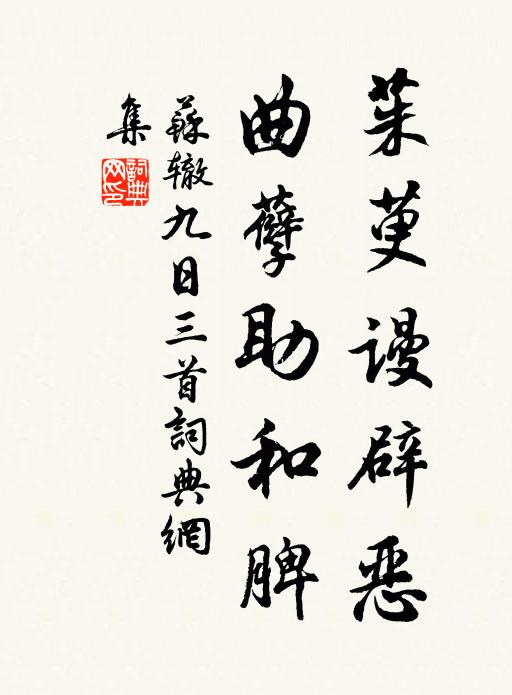 茱萸谩辟恶
曲孽助和脾
蘇辙九日三首詞典網
集
詞典网印